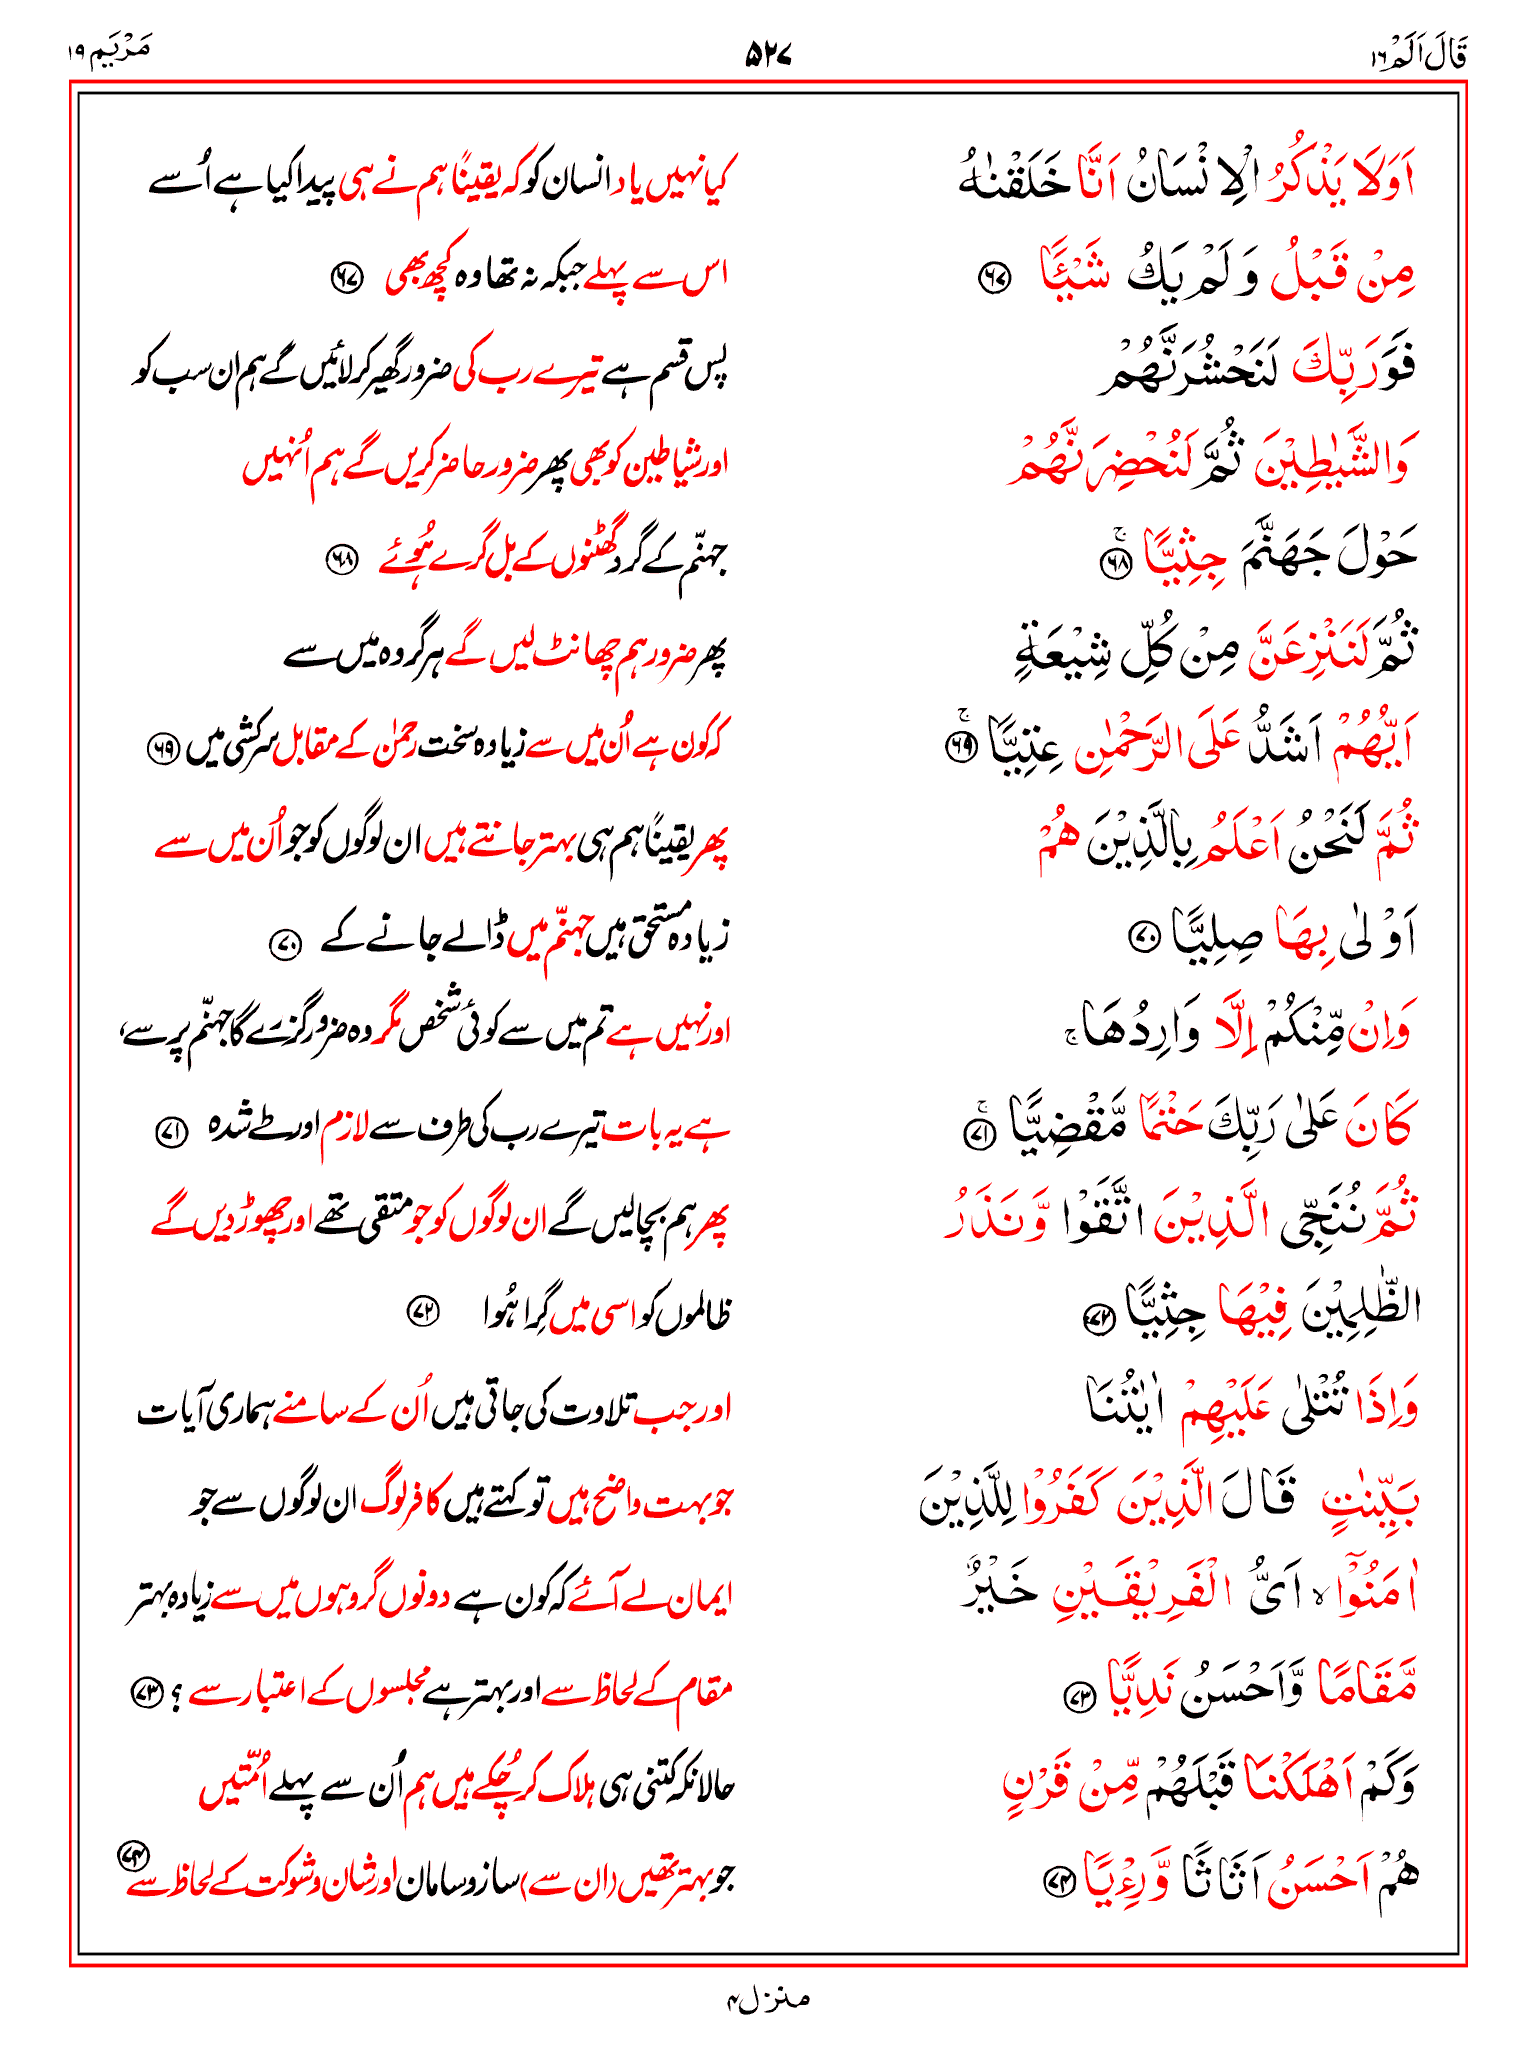 قَالَ اَلَمْ ١٦ ۵۲۷ مَرْيَم ١٩
اَوَلَا يَذْكُرُ الْاِنْسَانُ اَنَّا خَلَقْنٰهُ کیا نہیں یاد انسان کو کہ یقیناً ہم نے ہی پیدا کیا ہے اُسے
مِنْ قَبْلُ وَلَمْ يَكُ شَيْـًٔا ۶۷ اس سے پہلے جبکہ نہ تھا وہ کچھ بھی ۶۷
فَوَرَبِّكَ لَنَحْشُرَنَّهُمْ پس قسم ہے تیرے رب کی ضرور گھیر کر لائیں گے ہم ان سب کو
وَالشَّيٰطِيْنَ ثُمَّ لَنُحْضِرَنَّهُمْ اور شیاطین کو بھی پھر ضرور حاضر کریں گے ہم اُنہیں
حَوْلَ جَهَنَّمَ جِثِيًّا ۚ ۶۸ جہنّم کے گرد گھٹنوں کے بل گرے ہُوئے ۶۸
ثُمَّ لَنَنْزِعَنَّ مِنْ كُلِّ شِيْعَةٍ پھر ضرور ہم چھانٹ لیں گے ہر گروہ میں سے
اَيُّهُمْ اَشَدُّ عَلَى الرَّحْمٰنِ عِتِيًّا ۚ ۶۹ کہ کون ہے اُن میں سے زیادہ سخت رحمٰن کے مقابل سرکشی میں ۶۹
ثُمَّ لَنَحْنُ اَعْلَمُ بِالَّذِيْنَ هُمْ پھر یقیناً ہم ہی بہتر جانتے ہیں ان لوگوں کو جو اُن میں سے
اَوْلٰى بِهَا صِلِيًّا ۷۰ زیادہ مستحق ہیں جہنّم میں ڈالے جانے کے ۷۰
وَاِنْ مِّنْكُمْ اِلَّا وَارِدُهَا ۚ اور نہیں ہے تم میں سے کوئی شخص مگر وہ ضرور گزرے گا جہنّم پر سے،
كَانَ عَلٰى رَبِّكَ حَتْمًا مَّقْضِيًّا ۚ ۷۱ ہے یہ بات تیرے رب کی طرف سے لازم اور طے شدہ ۷۱
ثُمَّ نُنَجِّى الَّذِيْنَ اتَّقَوْا وَّنَذَرُ پھر ہم بچا لیں گے ان لوگوں کو جو متقی تھے اور چھوڑ دیں گے
الظّٰلِمِيْنَ فِيْهَا جِثِيًّا ۷۲ ظالموں کو اسی میں گِرا ہُوا ۷۲
وَاِذَا تُتْلٰى عَلَيْهِمْ اٰيٰتُنَا اور جب تلاوت کی جاتی ہیں اُن کے سامنے ہماری آیات
بَيِّنٰتٍ قَالَ الَّذِيْنَ كَفَرُوْا لِلَّذِيْنَ جو بہت واضح ہیں تو کہتے ہیں کافر لوگ ان لوگوں سے جو
اٰمَنُوْۤا ۙ اَىُّ الْفَرِيْقَيْنِ خَيْرٌ ایمان لے آئے کہ کون ہے دونوں گروہوں میں سے زیادہ بہتر
مَّقَامًا وَّاَحْسَنُ نَدِيًّا ۷۳ مقام کے لحاظ سے اور بہتر ہے مجلسوں کے اعتبار سے ؟ ۷۳
وَكَمْ اَهْلَكْنَا قَبْلَهُمْ مِّنْ قَرْنٍ حالانکہ کتنی ہی ہلاک کر چُکے ہیں ہم اُن سے پہلے اُمّتیں
هُمْ اَحْسَنُ اَثَاثًا وَّرِءْيًا ۷۴ جو بہتر تھیں (ان سے) ساز و سامان اور شان و شوکت کے لحاظ سے ۷۴
منزل ۴